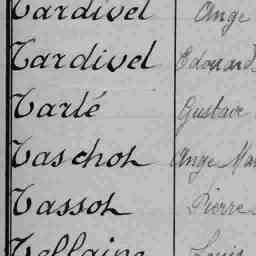 Tardivel Ange
Tardivel Edouard
Tarlé Gustave
Taschot Ange
Tassot Pierre
Tellaine Louis